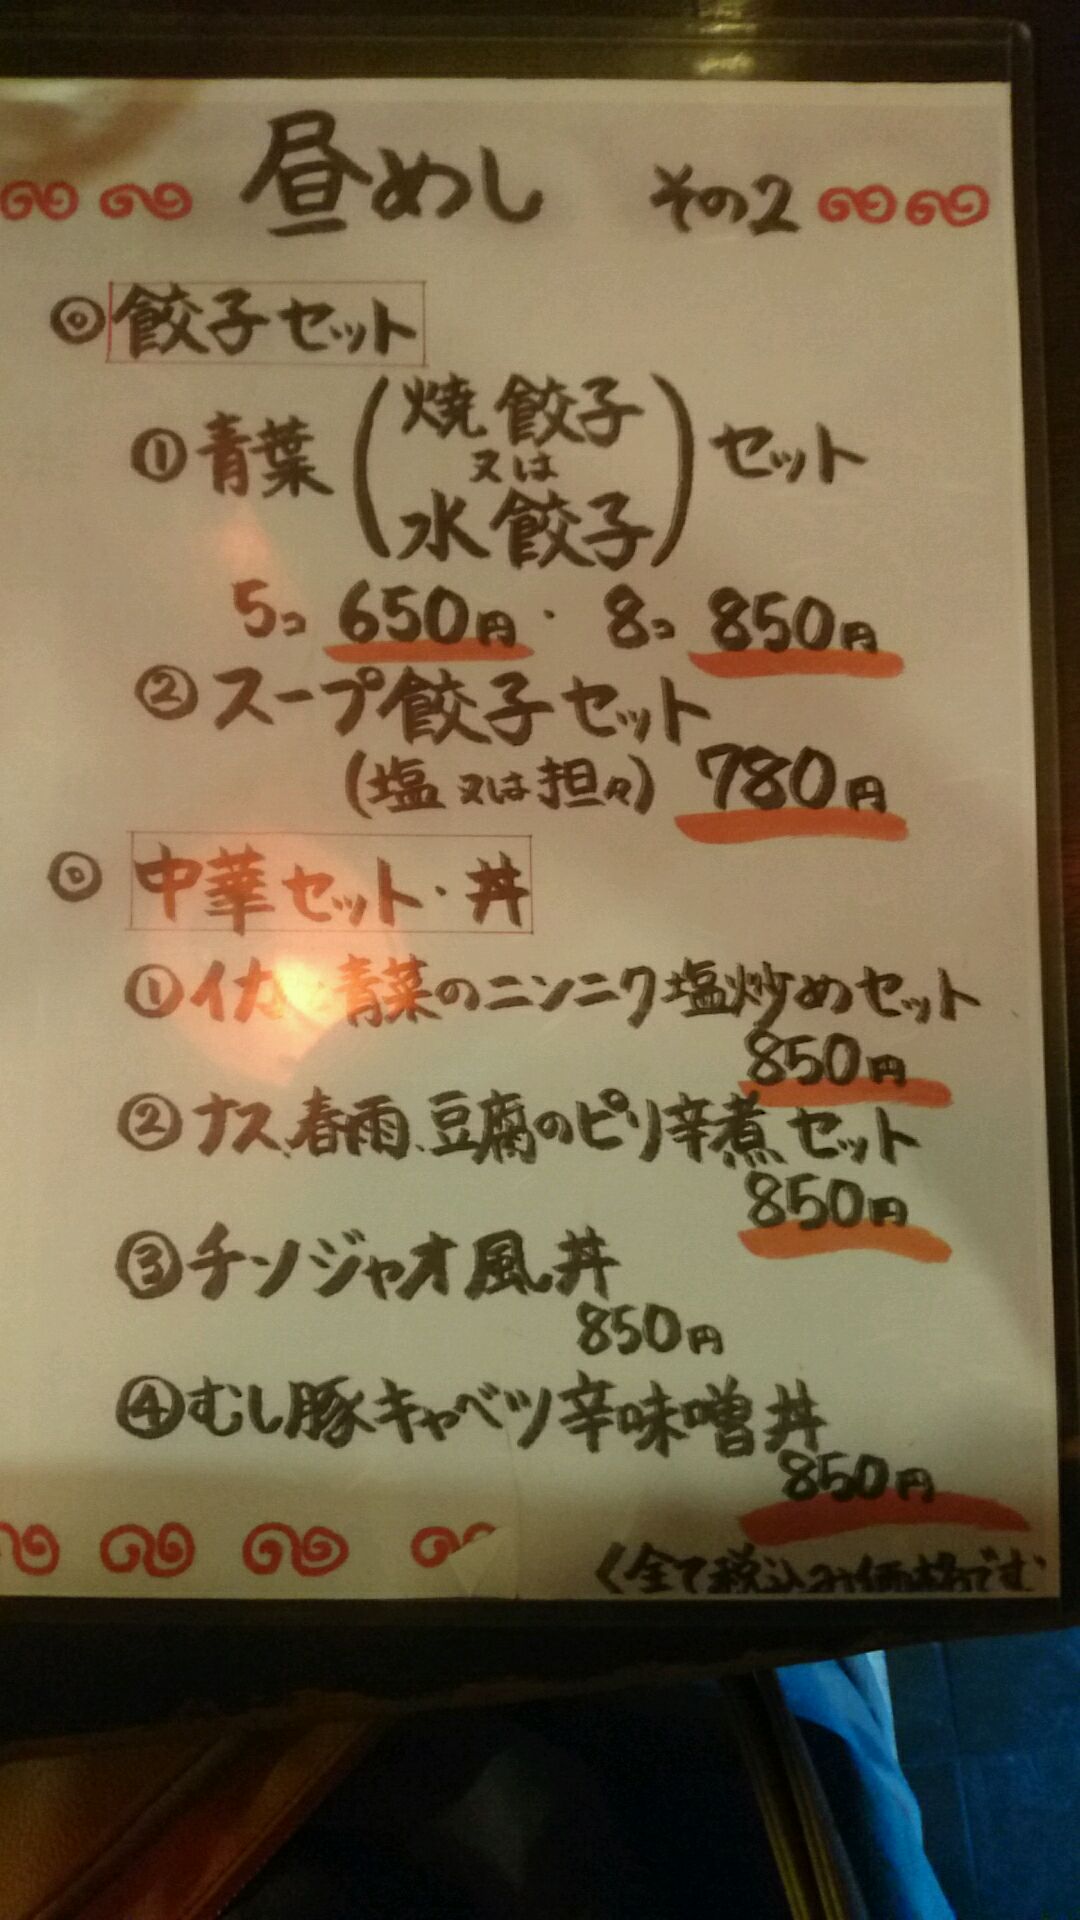 昼めし その2
◎ 餃子セット
① 青葉(焼餃子又は水餃子)セット
5コ 650円・8コ 850円
② スープ餃子セット
(塩又は担々) 780円
◎ 中華セット・丼
① イカ 青菜のニンニク塩炒めセット
850円
② ナス、春雨、豆腐のピリ辛煮セット
850円
③ チンジャオ風丼
850円
④ むし豚キャベツ辛味噌丼
850円
く全て税込み価格です